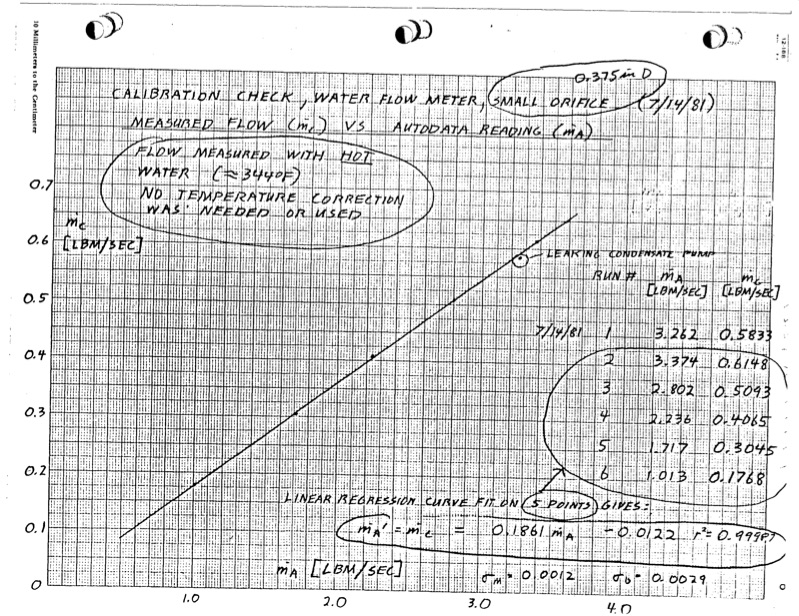 10 Millimeters to the Centimeter
0.375 in D
CALIBRATION CHECK, WATER FLOW METER, SMALL ORIFICE (7/14/81)
MEASURED FLOW (ṁc) VS AUTODATA READING (ṁA)
FLOW MEASURED WITH HOT
WATER (≈344°F)
NO TEMPERATURE CORRECTION
WAS NEEDED OR USED
0.7
ṁc
[LBM/SEC]
0.6
0.5
0.4
0.3
0.2
0.1
0
LEAKING CONDENSATE PUMP
RUN # ṁA ṁc
[LBM/SEC] [LBM/SEC]
7/14/81 1 3.262 0.5833
2 3.374 0.6148
3 2.802 0.5093
4 2.236 0.4065
5 1.717 0.3045
6 1.013 0.1768
LINEAR REGRESSION CURVE FIT ON 5 POINTS GIVES:
ṁA' = ṁc = 0.1861 ṁA - 0.0122 r² = 0.99989
ṁA [LBM/SEC] σm = 0.0012 σb = 0.0029
1.0 2.0 3.0 4.0